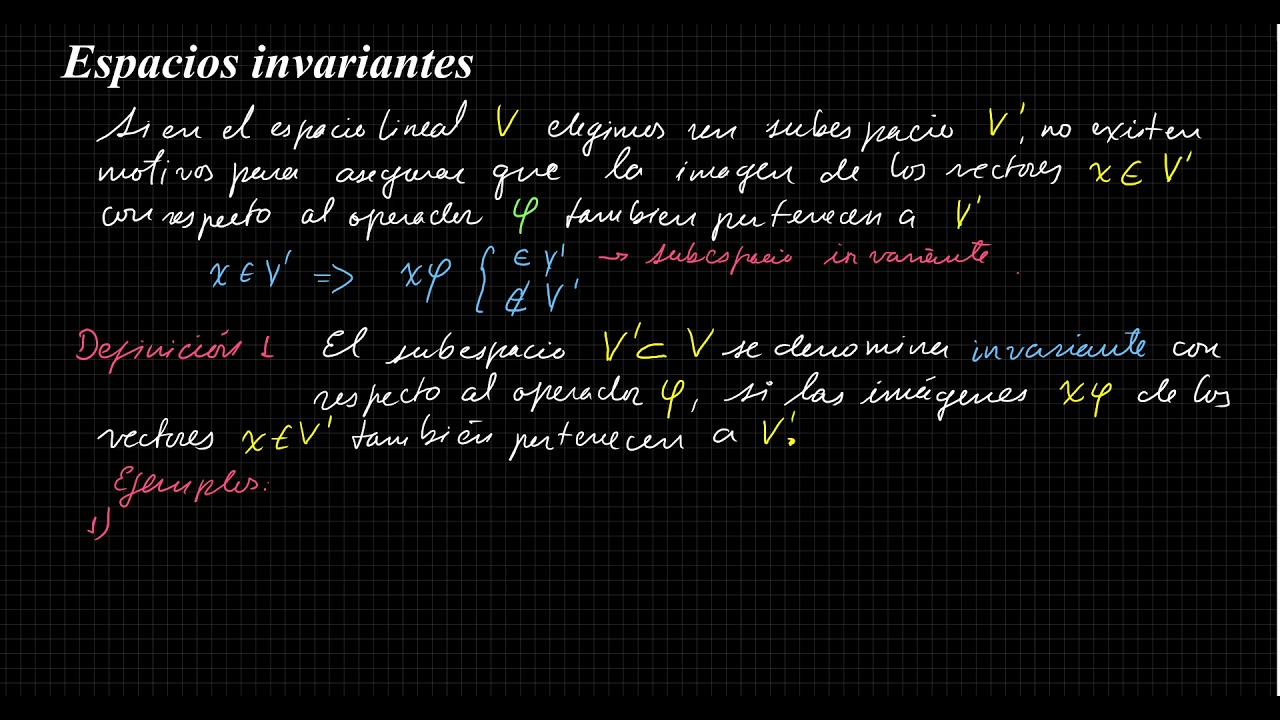 Espacios invariantes
Si en el espacio lineal V elegimos un subespacio V', no existen
motivos para asegurar que la imagen de los vectores x ∈ V'
con respecto al operador φ tambien pertenecen a V'
x ∈ V' => xφ { ∈ V' → subespacio invariante.
∉ V'
Definición 1 El subespacio V' ⊂ V se denomina invariante con
respecto al operador φ, si las imágenes xφ de los
vectores x ∈ V' también pertenecen a V'.
Ejemplos:
1)